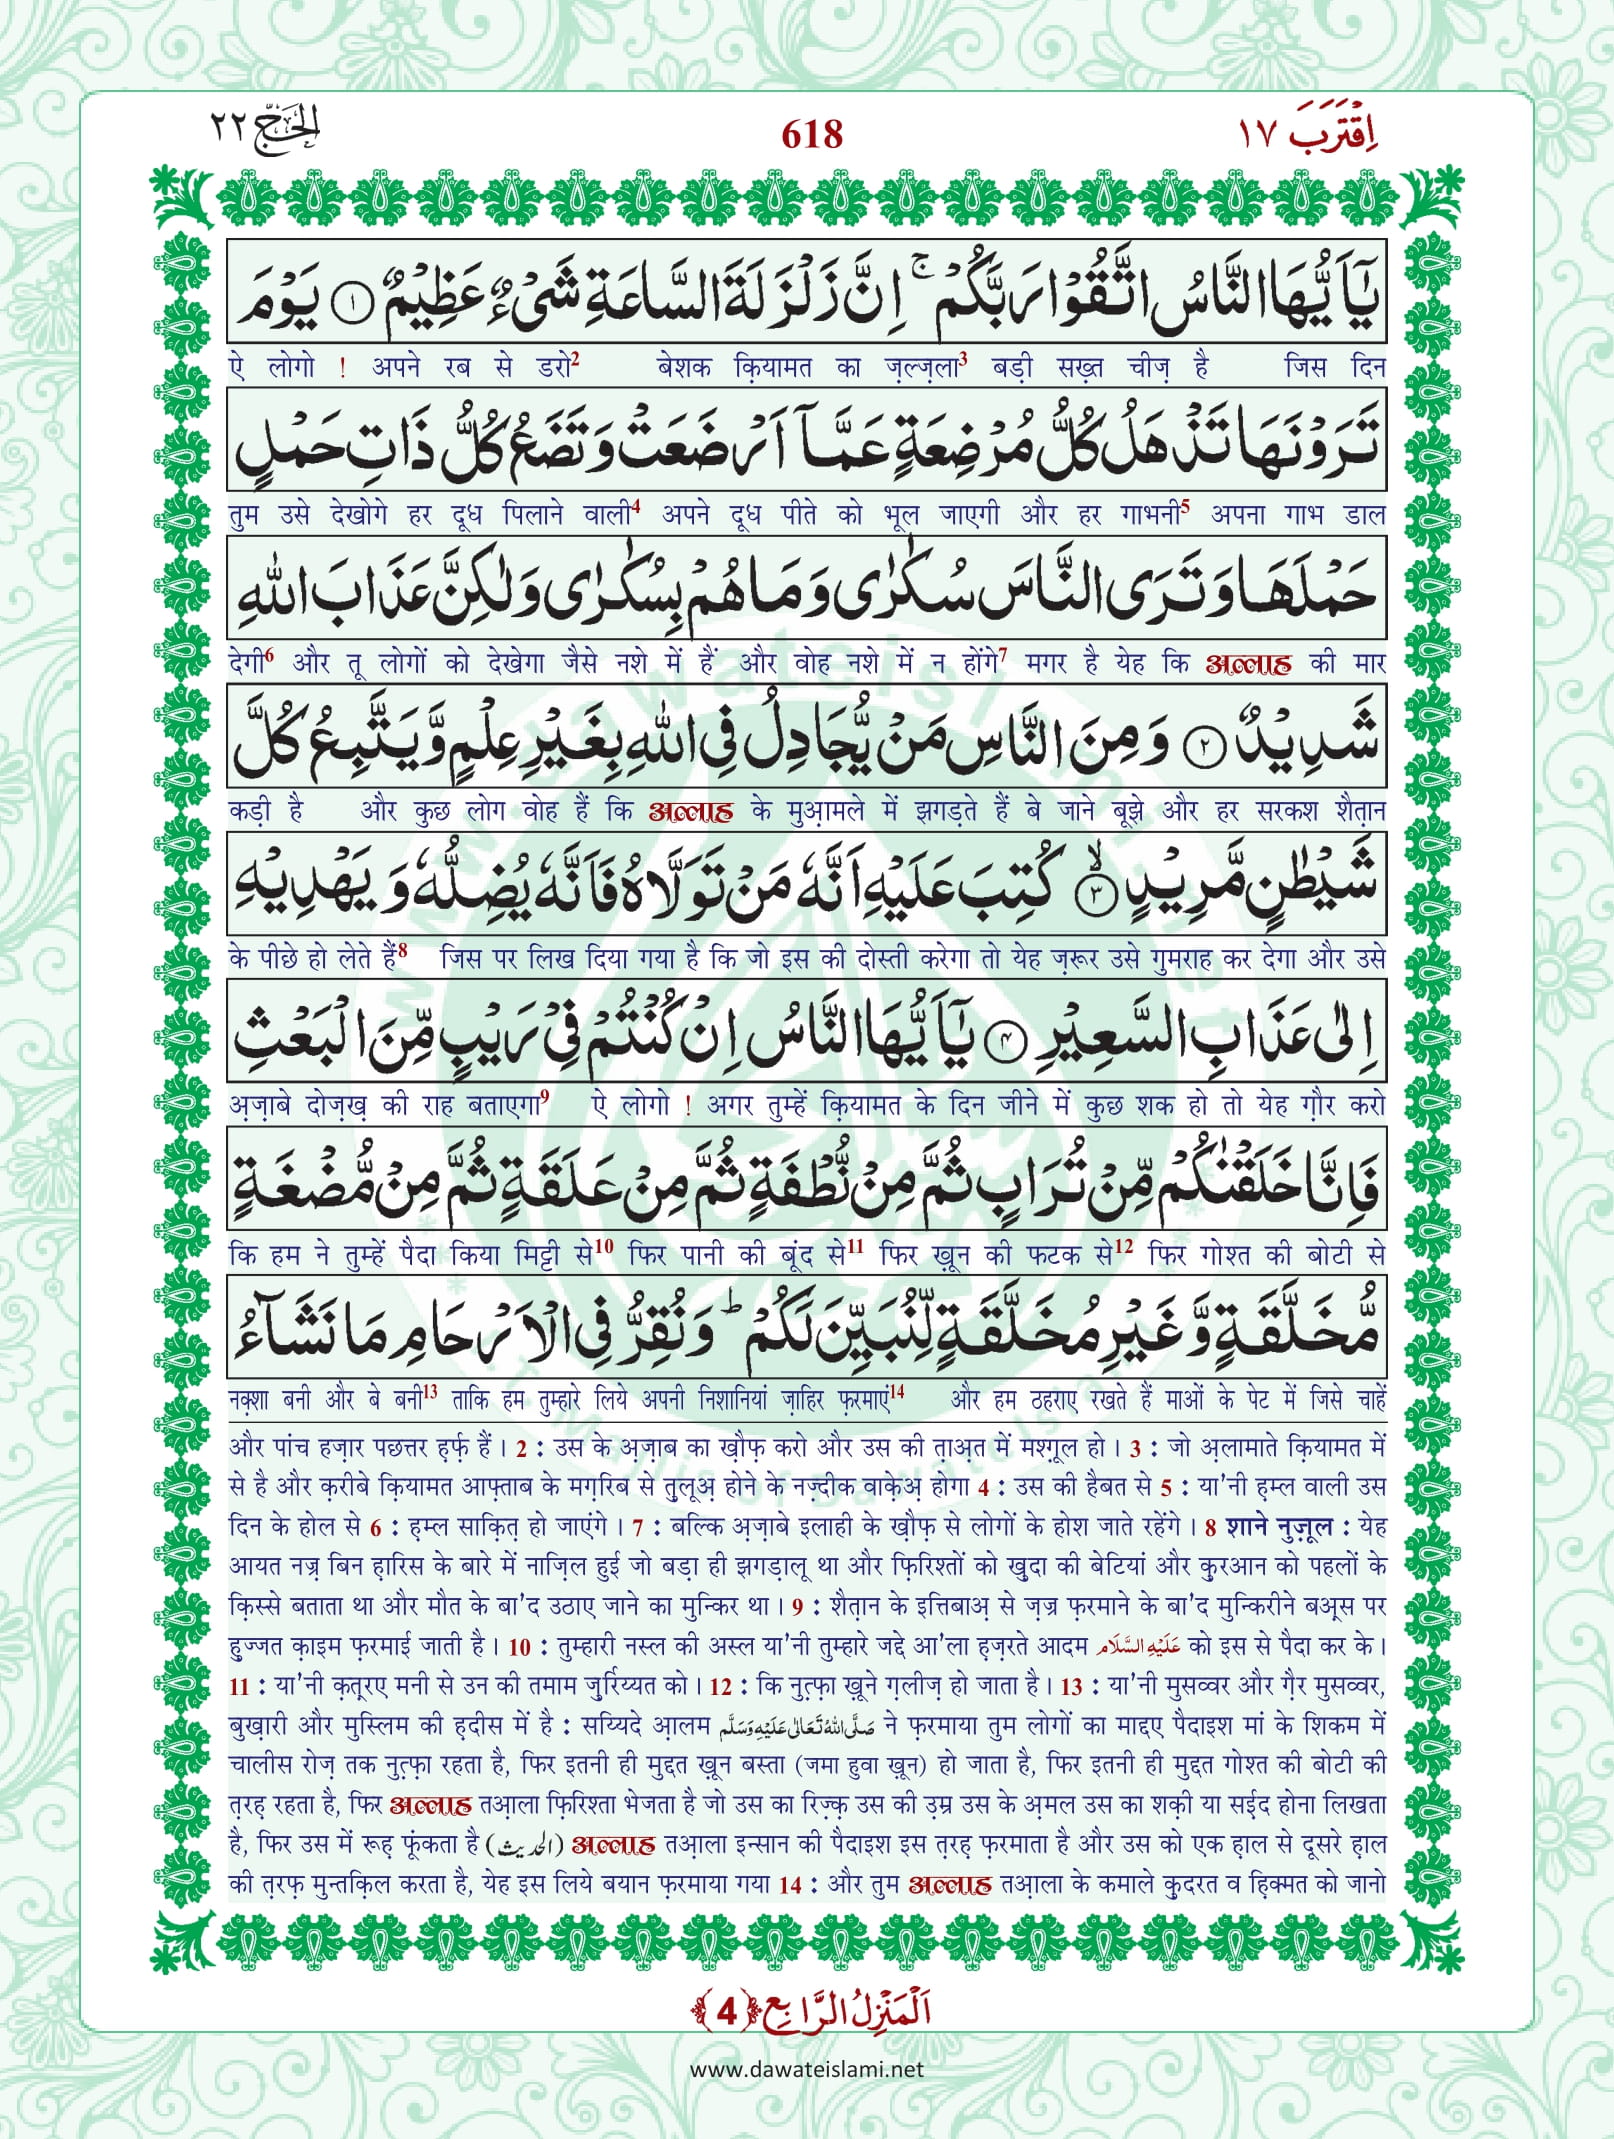 اِقْتَرَبَ ١٧
618
الحَجّ ٢٢
يٰۤاَيُّهَا النَّاسُ اتَّقُوْا رَبَّكُمْ ۚ اِنَّ زَلْزَلَةَ السَّاعَةِ شَیْءٌ عَظِيْمٌ ۝۱ يَوْمَ
ऐ लोगो ! अपने रब से डरो2 बेशक क़ियामत का ज़ल्ज़ला3 बड़ी सख़्त चीज़ है जिस दिन
تَرَوْنَهَا تَذْهَلُ كُلُّ مُرْضِعَةٍ عَمَّاۤ اَرْضَعَتْ وَتَضَعُ كُلُّ ذَاتِ حَمْلٍ
तुम उसे देखोगे हर दूध पिलाने वाली4 अपने दूध पीते को भूल जाएगी और हर गाभनी5 अपना गाभ डाल
حَمْلَهَا وَتَرَى النَّاسَ سُكٰرٰى وَمَا هُمْ بِسُكٰرٰى وَلٰكِنَّ عَذَابَ اللّٰهِ
देगी6 और तू लोगों को देखेगा जैसे नशे में हैं और वोह नशे में न होंगे7 मगर है येह कि अल्लाह की मार
شَدِيْدٌ ۝۲ وَمِنَ النَّاسِ مَنْ يُّجَادِلُ فِی اللّٰهِ بِغَيْرِ عِلْمٍ وَّيَتَّبِعُ كُلَّ
कड़ी है और कुछ लोग वोह हैं कि अल्लाह के मुआ़मले में झगड़ते हैं बे जाने बूझे और हर सरकश शैत़ान
شَيْطٰنٍ مَّرِيْدٍ ۝۳ۙ كُتِبَ عَلَيْهِ اَنَّهٗ مَنْ تَوَلَّاهُ فَاَنَّهٗ يُضِلُّهٗ وَيَهْدِيْهِ
के पीछे हो लेते हैं8 जिस पर लिख दिया गया है कि जो इस की दोस्ती करेगा तो येह ज़रूर उसे गुमराह कर देगा और उसे
اِلٰى عَذَابِ السَّعِيْرِ ۝۴ يٰۤاَيُّهَا النَّاسُ اِنْ كُنْتُمْ فِیْ رَيْبٍ مِّنَ الْبَعْثِ
अ़ज़ाबे दोज़ख़ की राह बताएगा9 ऐ लोगो ! अगर तुम्हें क़ियामत के दिन जीने में कुछ शक हो तो येह ग़ौर करो
فَاِنَّا خَلَقْنٰكُمْ مِّنْ تُرَابٍ ثُمَّ مِنْ نُّطْفَةٍ ثُمَّ مِنْ عَلَقَةٍ ثُمَّ مِنْ مُّضْغَةٍ
कि हम ने तुम्हें पैदा किया मिट्टी से10 फिर पानी की बूंद से11 फिर ख़ून की फटक से12 फिर गोश्त की बोटी से
مُّخَلَّقَةٍ وَّغَيْرِ مُخَلَّقَةٍ لِّنُبَيِّنَ لَكُمْ ؕ وَنُقِرُّ فِی الْاَرْحَامِ مَا نَشَآءُ
नक़्शा बनी और बे बनी13 ताकि हम तुम्हारे लिये अपनी निशानियां ज़ाहिर फ़रमाएं14 और हम ठहराए रखते हैं माओं के पेट में जिसे चाहें
और पांच हज़ार पछत्तर ह़र्फ़ हैं। 2 : उस के अ़ज़ाब का ख़ौफ़ करो और उस की त़ाअ़त में मश्ग़ूल हो। 3 : जो अ़लामाते क़ियामत में
से है और क़रीबे क़ियामत आफ़्ताब के मग़रिब से त़ुलूअ़ होने के नज़्दीक वाक़ेअ़ होगा 4 : उस की हैबत से 5 : या'नी ह़म्ल वाली उस
दिन के होल से 6 : ह़म्ल साक़ित़ हो जाएंगे। 7 : बल्कि अ़ज़ाबे इलाही के ख़ौफ़ से लोगों के होश जाते रहेंगे। 8 शाने नुज़ूल : येह
आयत नज़्र बिन ह़ारिस के बारे में नाज़िल हुई जो बड़ा ही झगड़ालू था और फ़िरिश्तों को ख़ुदा की बेटियां और क़ुरआन को पहलों के
क़िस्से बताता था और मौत के बा'द उठाए जाने का मुन्किर था। 9 : शैत़ान के इत्तिबाअ़ से ज़ज्र फ़रमाने के बा'द मुन्किरीने बअ़्स पर
ह़ुज्जत क़ाइम फ़रमाई जाती है। 10 : तुम्हारी नस्ल की अस्ल या'नी तुम्हारे जद्दे आ'ला ह़ज़रते आदम عَلَيْهِ السَّلَام को इस से पैदा कर के।
11 : या'नी क़त़्रए मनी से उन की तमाम ज़ुर्रिय्यत को। 12 : कि नुत़्फ़ा ख़ूने ग़लीज़ हो जाता है। 13 : या'नी मुसव्वर और ग़ैर मुसव्वर,
बुख़ारी और मुस्लिम की ह़दीस में है : सय्यिदे आ़लम صَلَّى اللهُ تَعَالٰى عَلَيْهِ وَسَلَّم ने फ़रमाया तुम लोगों का माद्दए पैदाइश मां के शिकम में
चालीस रोज़ तक नुत़्फ़ा रहता है, फिर इतनी ही मुद्दत ख़ून बस्ता (जमा हुवा ख़ून) हो जाता है, फिर इतनी ही मुद्दत गोश्त की बोटी की
त़रह़ रहता है, फिर अल्लाह तआ़ला फ़िरिश्ता भेजता है जो उस का रिज़्क़ उस की उ़म्र उस के अ़मल उस का शक़ी या सई़द होना लिखता
है, फिर उस में रूह़ फूंकता है (الحديث) अल्लाह तआ़ला इन्सान की पैदाइश इस त़रह़ फ़रमाता है और उस को एक ह़ाल से दूसरे ह़ाल
की त़रफ़ मुन्तक़िल करता है, येह इस लिये बयान फ़रमाया गया 14 : और तुम अल्लाह तआ़ला के कमाले क़ुदरत व ह़िक्मत को जानो
اَلْمَنْزِلُ الرَّابِع ﴿4﴾
www.dawateislami.net